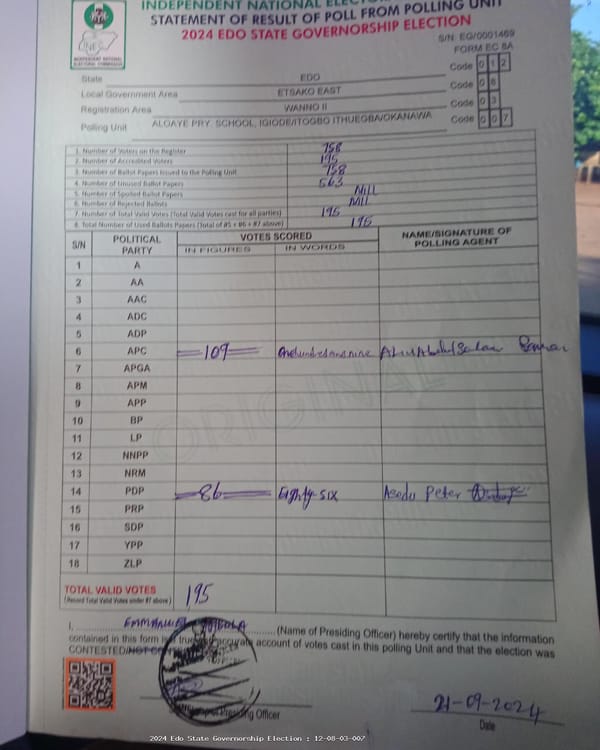 INDEPENDENT NATIONAL
STATEMENT OF RESULT OF POLL FROM POLLING UNIT
2024 EDO STATE GOVERNORSHIP ELECTION
S/N: EG/0001469
FORM EC 8A
INEC
INDEPENDENT NATIONAL ELECTORAL COMMISSION
State EDO Code 0 1 2
Local Government Area ETSAKO EAST Code 0 8
Registration Area WANNO II Code 0 3
Polling Unit ALOAYE PRY. SCHOOL, IGIODE/ITOGBO ITHUEGBA/OKANAWA Code 0 0 7
1. Number of Voters on the Register 758
2. Number of Accredited Voters 195
3. Number of Ballot Papers Issued to the Polling Unit 758
4. Number of Unused Ballot Papers 563
5. Number of Spoiled Ballot Papers Nill
6. Number of Rejected Ballots Nill
7. Number of Total Valid Votes (Total Valid Votes cast for all parties) 195
8. Total Number of Used Ballots Papers (Total of #5 + #6 + #7 above) 195
S/N POLITICAL PARTY VOTES SCORED NAME/SIGNATURE OF POLLING AGENT
IN FIGURES IN WORDS
1 A
2 AA
3 AAC
4 ADC
5 ADP
6 APC 109
7 APGA
8 APM
9 APP
10 BP
11 LP
12 NNPP
13 NRM
14 PDP 86 Eighty-six Peter
15 PRP
16 SDP
17 YPP
18 ZLP
ORIGINAL
TOTAL VALID VOTES 195
(Record Total Valid Votes under #7 above)
I, EMMANUEL (Name of Presiding Officer) hereby certify that the information
contained in this form is true accurate account of votes cast in this polling Unit and that the election was
CONTESTED/NOT
Presiding Officer
21-09-2024
Date
2024 Edo State Governorship Election : 12-08-03-007